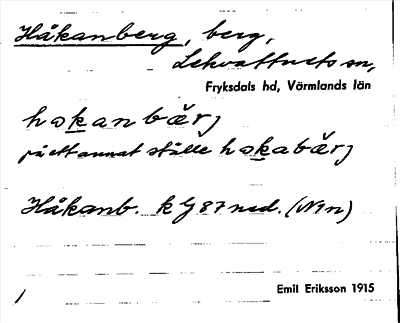 Håkanberg, berg,
Lekvattnets sn,
Fryksdals hd, Värmlands län
hakanbärj
på ett annat ställe hakabärj
Håkanb. k G 87 ned. (N1n)
Emil Eriksson 1915